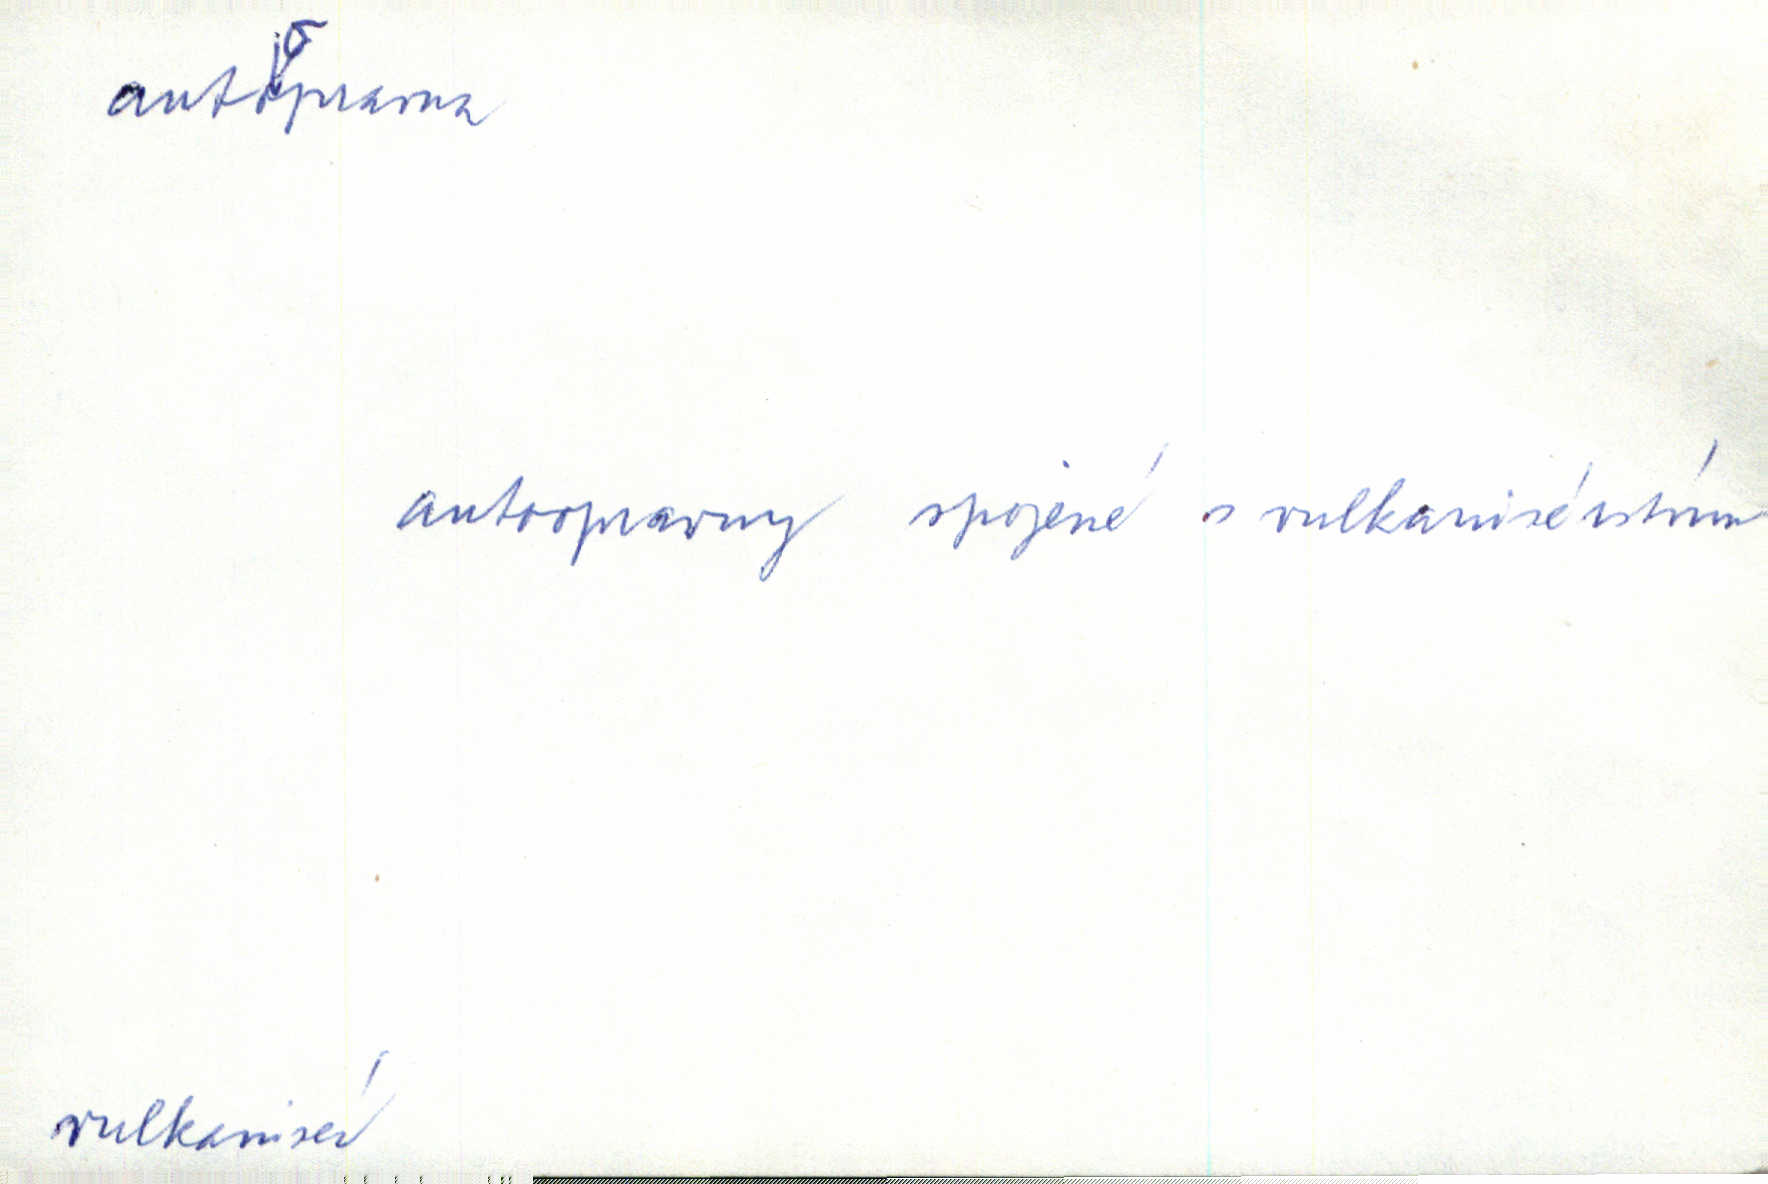 autoopravna
autoopravny spojené s vulkanisérstvím
vulkanisér